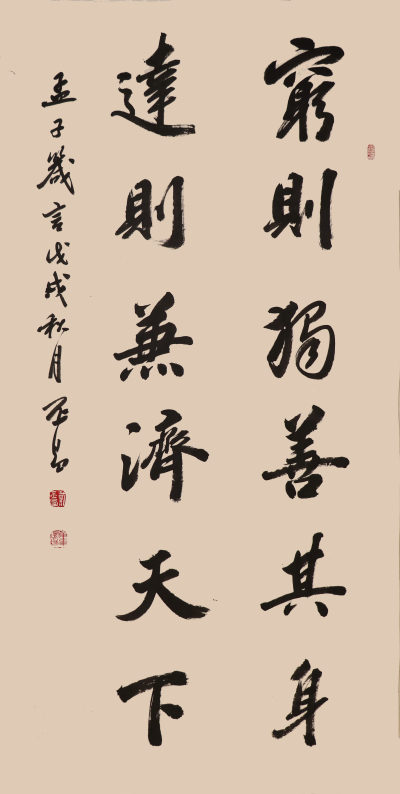 窮則獨善其身
達則兼濟天下
孟子箴言戊戌秋月